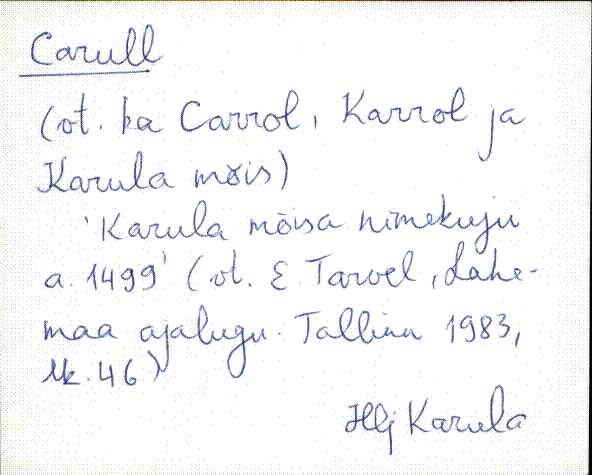 Carull
(vt. ka Carrol, Karrol ja
Karula mõis)
'Karula mõisa nimekuju
a. 1499' (vt. E. Tarvel, Lahe-
maa ajalugu. Tallinn 1983,
lk. 46)
Hlj Karula